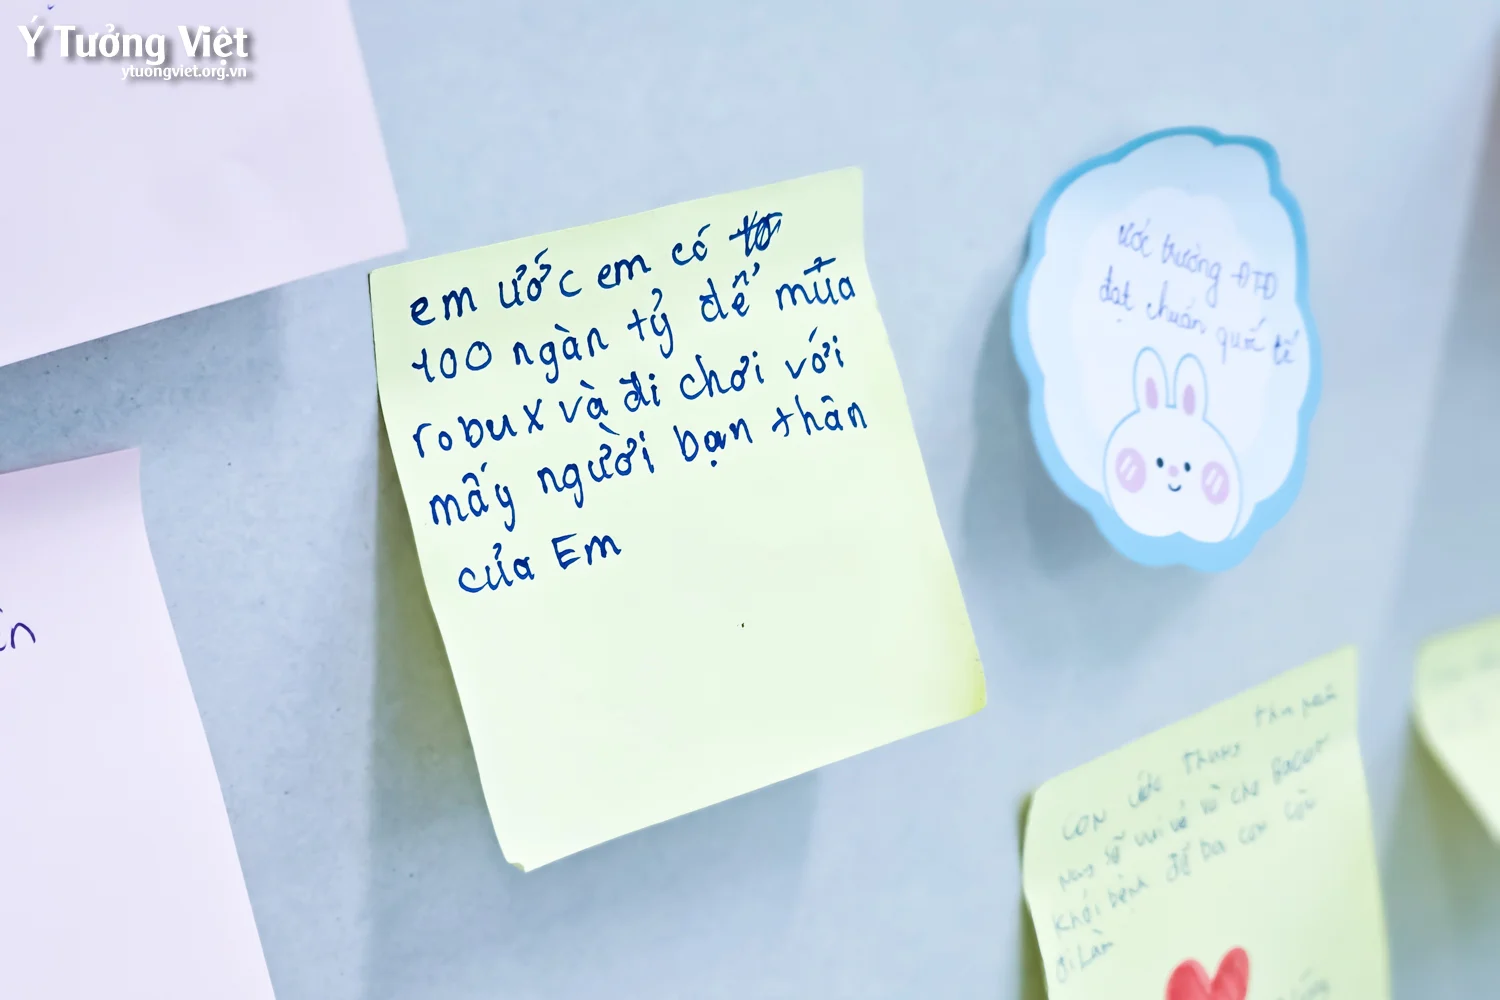 Ý Tưởng Việt
ytuongviet.org.vn
em ước em có
100 ngàn tỷ để mua
robux và đi chơi với
mấy người bạn thân
của Em
ước trường ĐTĐ
đạt chuẩn quốc tế
con ước
vui vẻ và cho
khỏi bệnh để ba con
đi làm